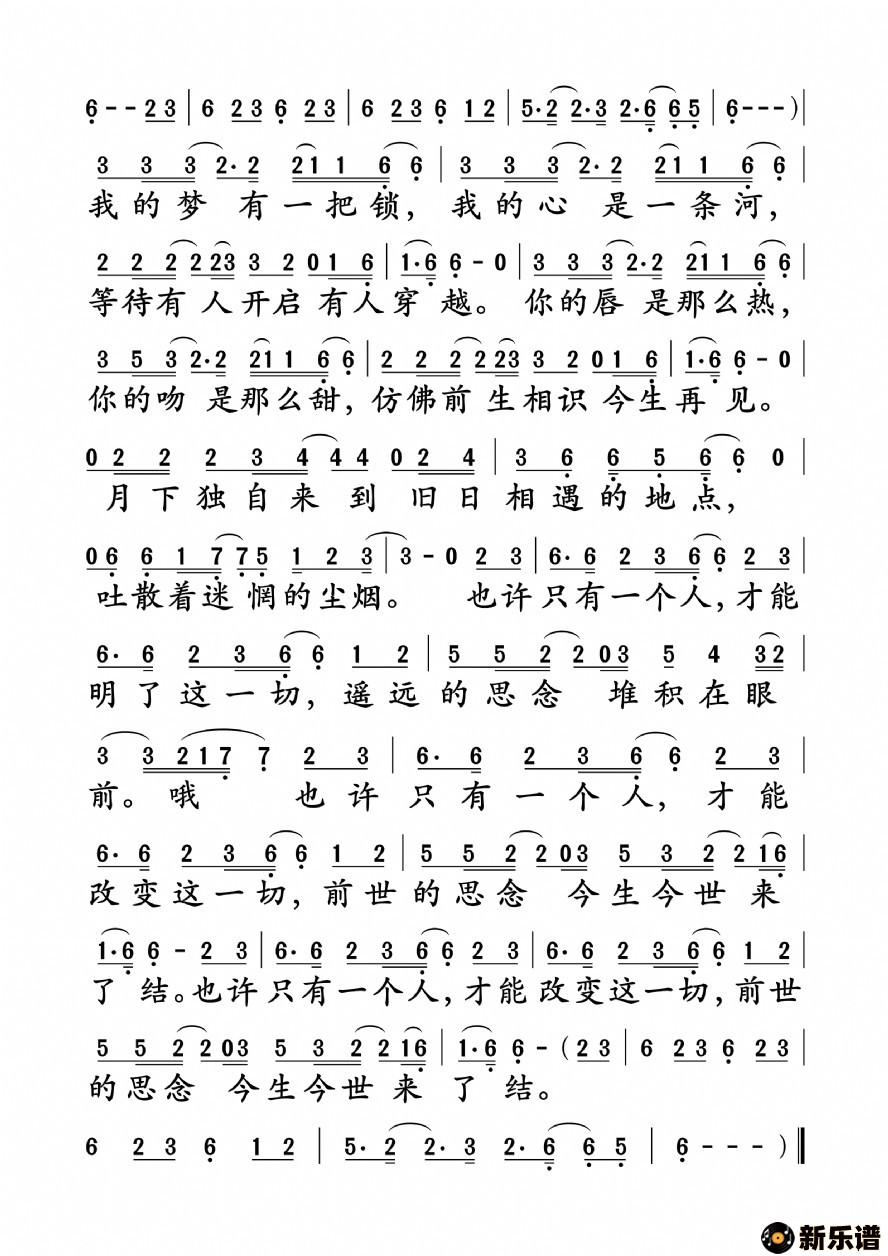 6 - - 2 3 | 6 2 3 6 2 3 | 6 2 3 6 1 2 | 5· 2 2· 3 2· 6 6 5 | 6 - - - )|
3 3 3 2· 2 2 1 1 6 6 | 3 3 3 2· 2 2 1 1 6 6 |
我的梦 有一把锁，我的心 是一条河，
2 2 2 2 2 3 3 2 0 1 6 | 1· 6 6 - 0 | 3 3 3 2· 2 2 1 1 6 6 |
等待有 人开启 有人穿 越。 你的唇 是那么热，
3 5 3 2· 2 2 1 1 6 6 | 2 2 2 2 2 3 3 2 0 1 6 | 1· 6 6 - 0 |
你的吻 是那么甜，仿佛前 生相识 今生再 见。
0 2 2 2 3 4 4 4 0 2 4 | 3 6 6 5 6 6 0 |
月下独自来 到 旧日相遇的地点，
0 6 6 1 7 7 5 1 2 3 | 3 - 0 2 3 | 6· 6 2 3 6 6 2 3 |
吐散着迷 惘的尘烟。 也许只有一个人，才能
6· 6 2 3 6 6 1 2 | 5 5 2 2 0 3 5 4 3 2 |
明了这一切，遥远的思念 堆积在眼
3 3 2 1 7 7 2 3 | 6· 6 2 3 6 6 2 3 |
前。哦 也许只有一个人，才能
6· 6 2 3 6 6 1 2 | 5 5 2 2 0 3 5 3 2 2 1 6 |
改变这一切，前世的思念 今生今世来
1· 6 6 - 2 3 | 6· 6 2 3 6 6 2 3 | 6· 6 2 3 6 6 1 2 |
了 结。也许只有一个人，才能改变这一切，前世
5 5 2 2 0 3 5 3 2 2 1 6 | 1· 6 6 - ( 2 3 | 6 2 3 6 2 3 |
的思念 今生今世来 了 结。
6 2 3 6 1 2 | 5· 2 2· 3 2· 6 6 5 | 6 - - - )‖
新乐谱